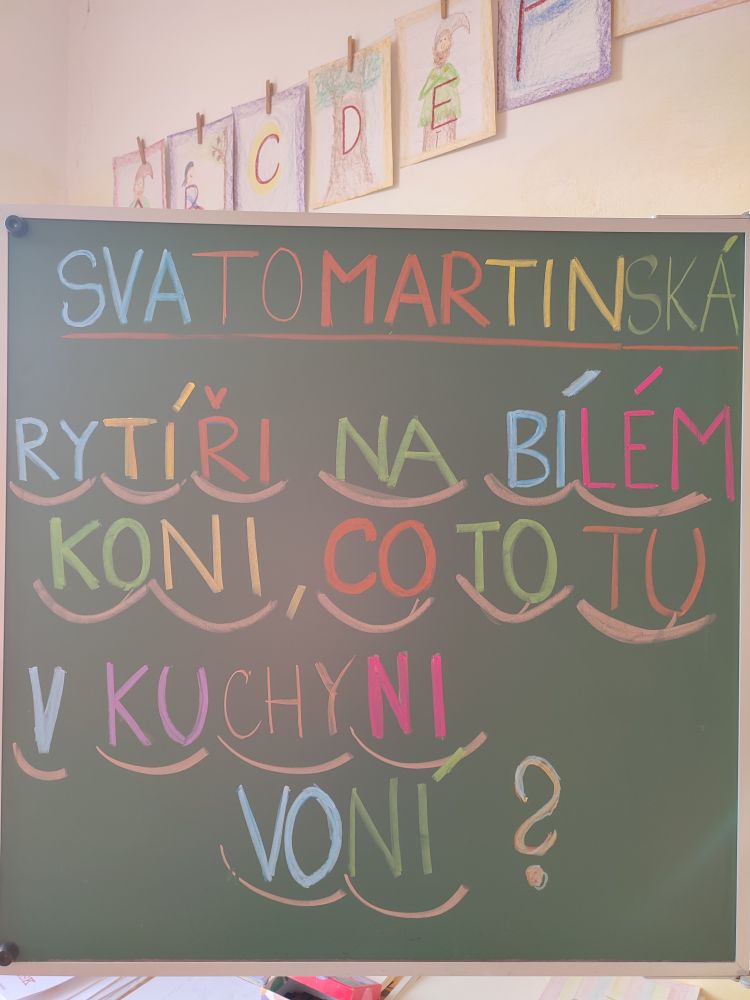 C D E F
SVATOMARTINSKÁ
RYTÍŘI NA BÍLÉM
KONI, CO TO TU
V KUCHYNI
VONÍ ?